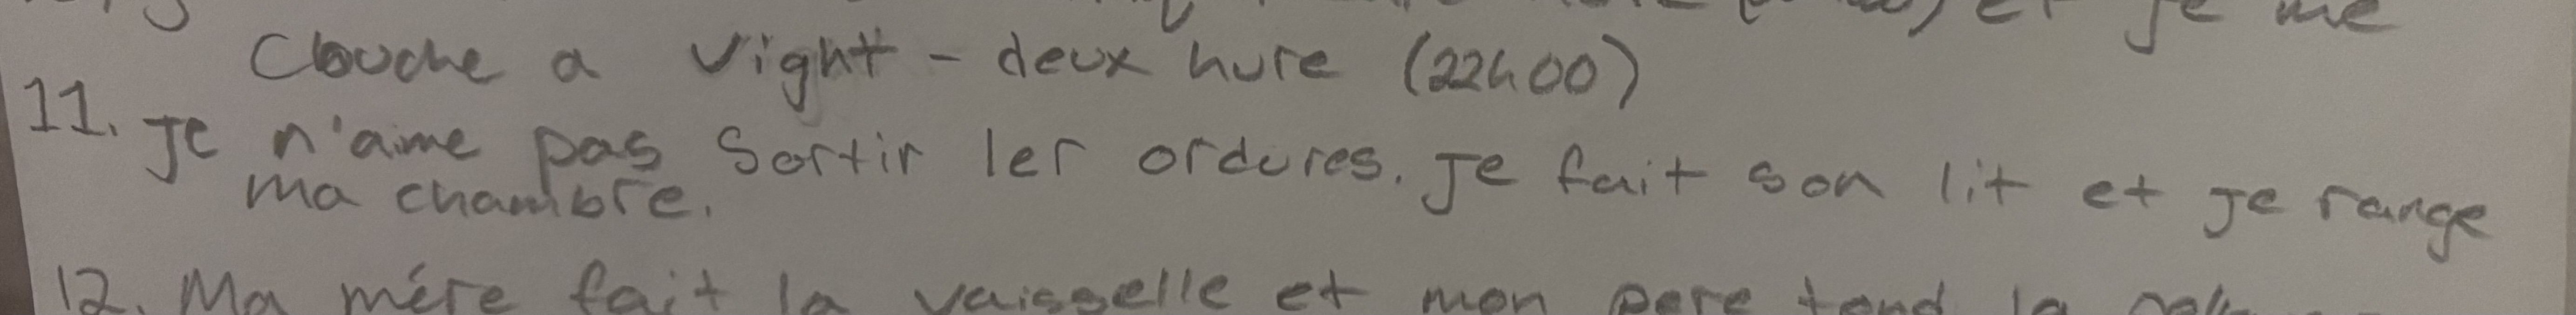 et je me
Clouche a vight - deux hure (22h00)
11. Je n'aime pas Sortir ler ordures. Je fait son lit et je range
ma chambre.
12. Ma mére fait la vaisselle et mon pere tond la